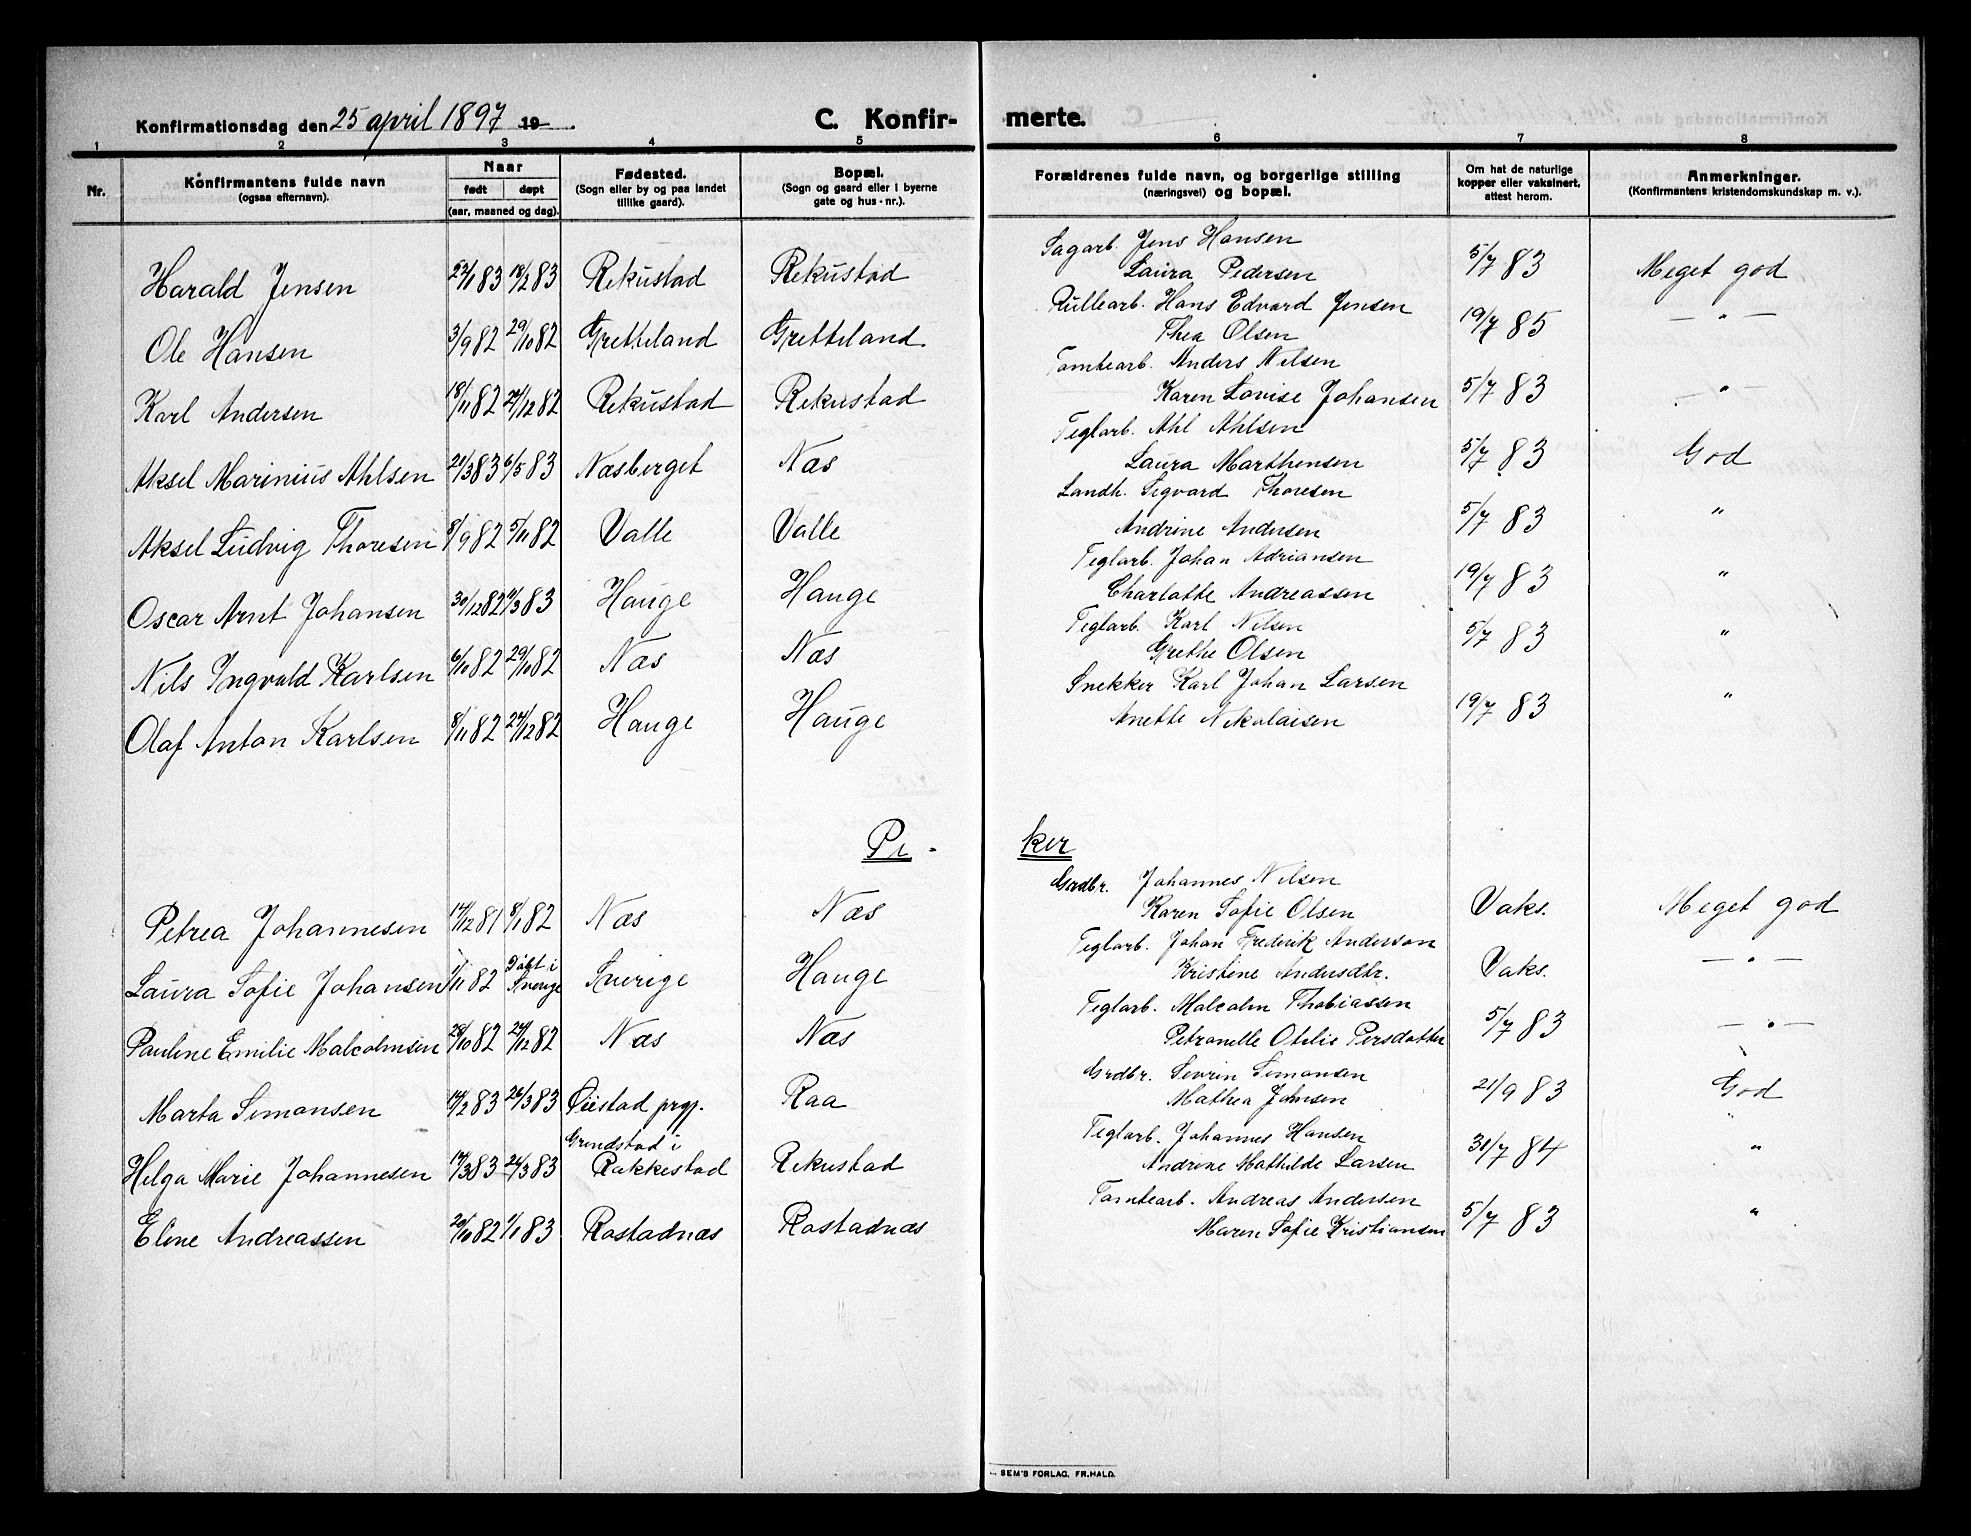 Konfirmationsdag den 25 april 1897 19
C. Konfir- merte.
1 2 3 4 5 6 7 8
Nr. Konfirmantens fulde navn (ogsaa efternavn). Naar født døpt (aar, maaned og dag). Fødested. (Sogn eller by og paa landet tillike gaard). Bopæl. (Sogn og gaard eller i byerne gate og hus-nr.). Forældrenes fulde navn, og borgerlige stilling (næringsvei) og bopæl. Om hat de naturlige kopper eller vaksinert, attest herom. Anmerkninger. (Konfirmantens kristendomskundskap m. v.).
Sagarb. Jens Hansen
Harald Jensen 83 18/2 83 Rekustad Rekustad Laura Pedersen 5/7 83 Meget god
Rullearb. Hans Edvard Jensen
Ole Hansen 3/9 82 29/10 82 Gretteland Gretteland Thea Olsen 19/7 85 — " —
Tomtearb. Anders Nilsen
Karl Andersen 18/11 82 24/12 82 Rekustad Rekustad Karen Lovise Johansen 5/7 83 — " —
Teglarb. Ahl Ahlsen
Aksel Marinius Ahlsen 20/3 83 6/5 83 Næsberget Næs Laura Marthensen 5/7 83 God
Landh. Sigvard Thoresen
Aksel Ludvig Thoresen 8/9 82 5/11 82 Valle Valle Andrine Andersen 5/7 83 "
Teglarb. Johan Adriansen
Oscar Arnt Johansen 30/12 82 11/3 83 Hauge Hauge Charlotte Andreassen 19/7 83 "
Teglarb. Karl Nilsen
Nils Ingvald Karlsen 6/10 82 29/10 82 Næs Næs Grethe Olsen 5/7 83 "
Snekker Karl Johan Larsen
Olaf Anton Karlsen 8/11 82 24/12 82 Hauge Hauge Anette Nikolaisen 19/7 83 "
Pi - ker
Grdbr. Johannes Nilsen
Petrea Johannesen 14/12 81 8/1 82 Næs Næs Karen Sofie Olsen Vaks. Meget god
Teglarb. Johan Frederik Anderson
Laura Sofie Johansen 1/11 82 Døbt i Sverige Sverige Hauge Kristine Andersdtr. Vaks. — " —
Teglarb. Malcolm Thobiassen
Pauline Emilie Malcolmsen 28/10 82 24/12 82 Næs Næs Petronelle Otilie Persdotter 5/7 83 — " —
Grdbr. Sevrin Simonsen
Marta Simonsen 14/2 83 26/3 83 Øiestad prgj. Raa Mathea Johnsen 21/9 83 God
Teglarb. Johannes Hansen
Helga Marie Johannesen 14/3 83 26/3 83 Grindstad i Rakkestad Rekustad Andrine Mathilde Larsen 31/7 84 "
Tomtearb. Andreas Andersen
Eline Andreassen 20/10 82 1/1 83 Rostadnæs Rostadnæs Maren Sofie Kristiansen 5/7 83 "
SEM'S FORLAG, FR.HALD.